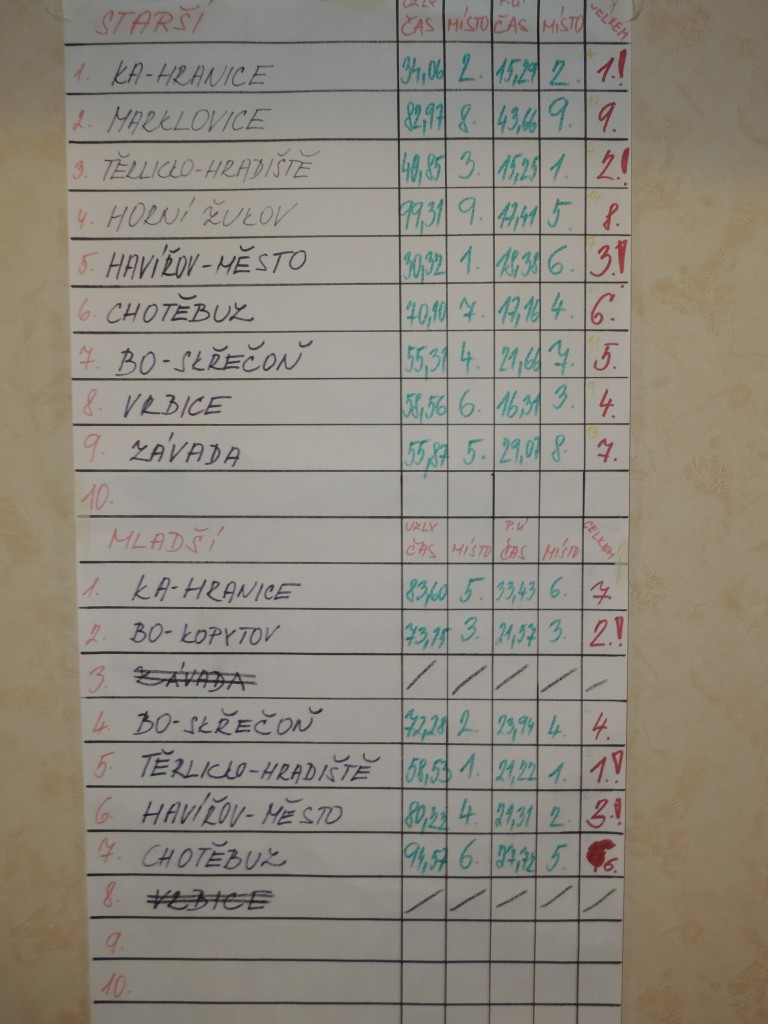 STARŠÍ UZLY ČAS MÍSTO P.Ú. ČAS MÍSTO CELKEM
1. KA-HRANICE 34,06 2. 15,29 2. 1.!
2. MARKLOVICE 82,97 8. 43,66 9. 9.
3. TĚRLICKO-HRADIŠTĚ 48,85 3. 15,25 1. 2.!
4. HORNÍ ŽUKOV 99,31 9. 17,41 5. 8.
5. HAVÍŘOV-MĚSTO 30,32 1. 18,38 6. 3.!
6. CHOTĚBUZ 70,10 7. 17,16 4. 6.
7. BO-SKŘEČOŇ 55,31 4. 21,66 7. 5.
8. VRBICE 58,56 6. 16,31 3. 4.
9. ZÁVADA 55,87 5. 29,07 8. 7.
10.
MLADŠÍ UZLY ČAS MÍSTO P.Ú ČAS MÍSTO CELKEM
1. KA-HRANICE 83,60 5. 33,43 6. 7
2. BO-KOPYTOV 73,15 3. 21,57 3. 2.!
3. ZÁVADA / / / / /
4. BO-SKŘEČOŇ 72,28 2. 23,94 4. 4.
5. TĚRLICKO-HRADIŠTĚ 58,53 1. 21,22 1. 1.!
6. HAVÍŘOV-MĚSTO 80,22 4. 21,31 2. 3.!
7. CHOTĚBUZ 94,57 6. 27,72 5. 6.
8. VRBICE / / / / /
9.
10.